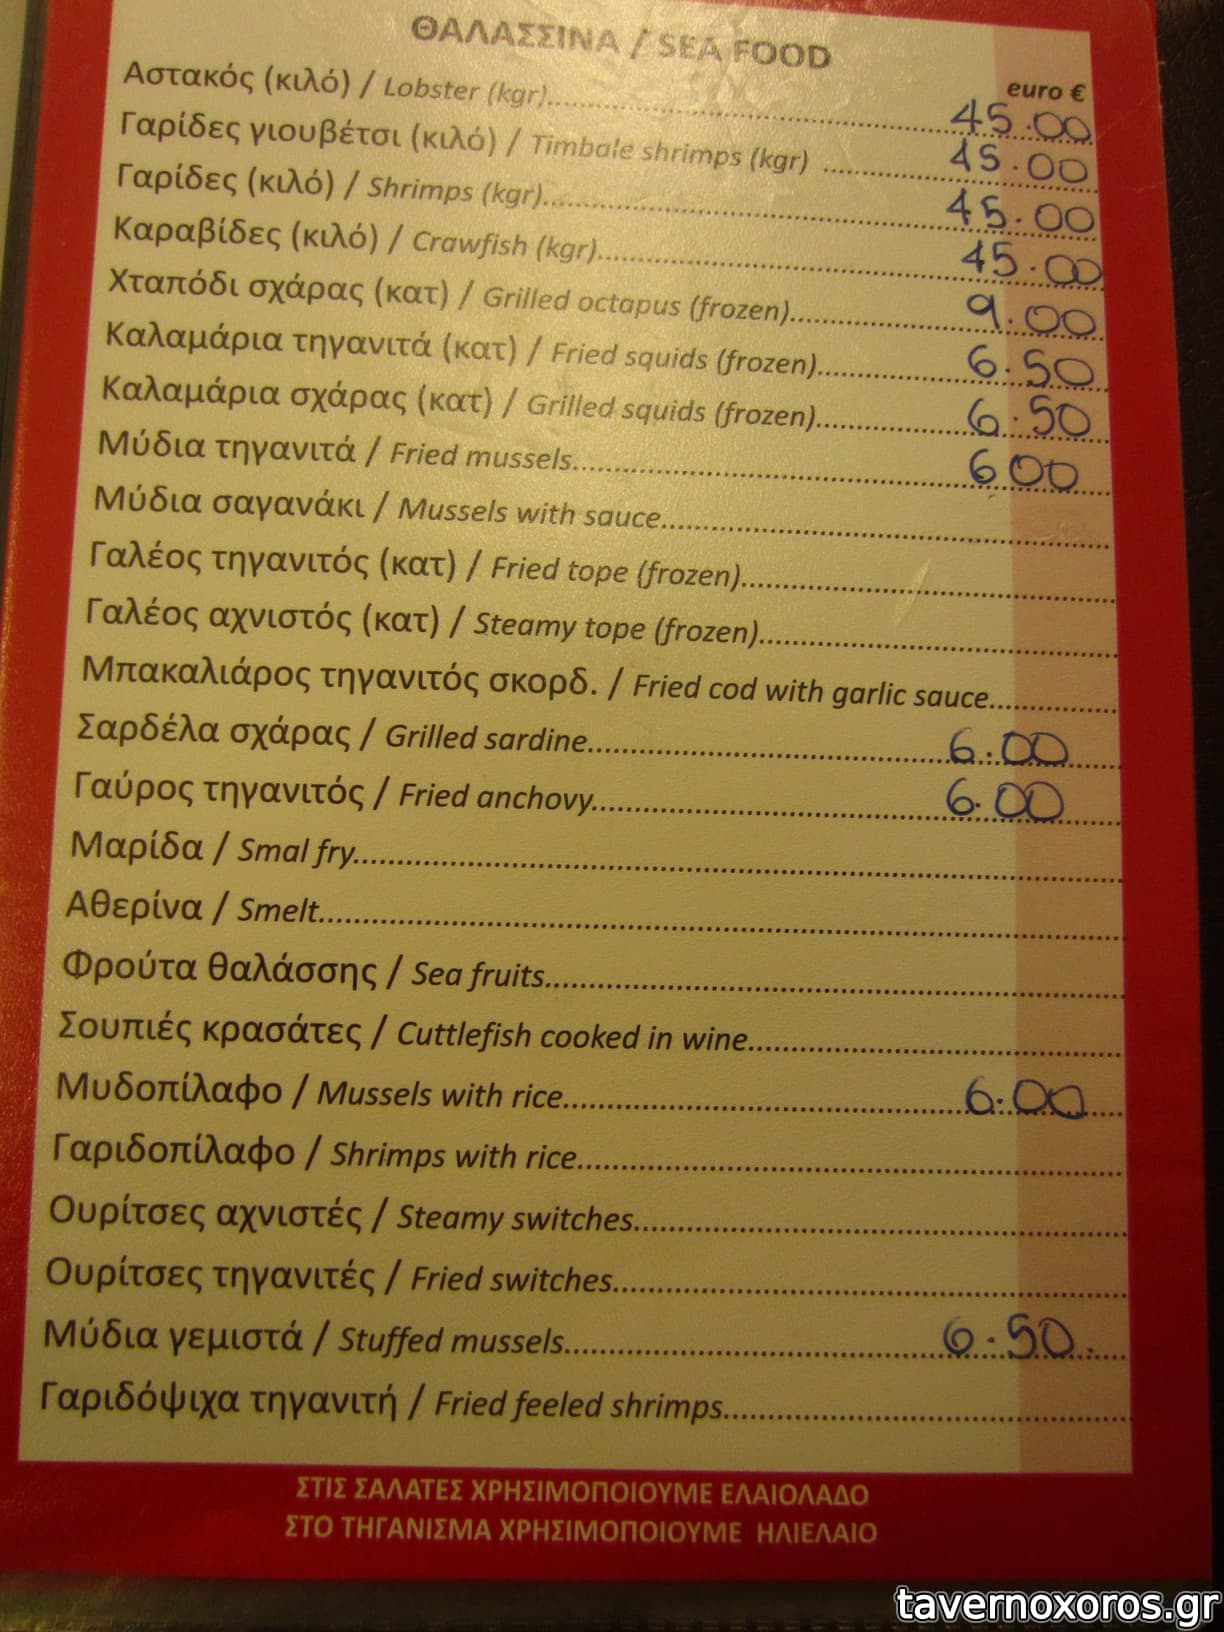 ΘΑΛΑΣΣΙΝΑ / SEA FOOD
euro €
Αστακός (κιλό) / Lobster (kgr) 45.00
Γαρίδες γιουβέτσι (κιλό) / Timbale shrimps (kgr) 45.00
Γαρίδες (κιλό) / Shrimps (kgr) 45.00
Καραβίδες (κιλό) / Crawfish (kgr) 45.00
Χταπόδι σχάρας (κατ) / Grilled octapus (frozen) 9.00
Καλαμάρια τηγανιτά (κατ) / Fried squids (frozen) 6.50
Καλαμάρια σχάρας (κατ) / Grilled squids (frozen) 6.50
Μύδια τηγανιτά / Fried mussels 6.00
Μύδια σαγανάκι / Mussels with sauce
Γαλέος τηγανιτός (κατ) / Fried tope (frozen)
Γαλέος αχνιστός (κατ) / Steamy tope (frozen)
Μπακαλιάρος τηγανιτός σκορδ. / Fried cod with garlic sauce
Σαρδέλα σχάρας / Grilled sardine 6.00
Γαύρος τηγανιτός / Fried anchovy 6.00
Μαρίδα / Smal fry
Αθερίνα / Smelt
Φρούτα θαλάσσης / Sea fruits
Σουπιές κρασάτες / Cuttlefish cooked in wine
Μυδοπίλαφο / Mussels with rice 6.00
Γαριδοπίλαφο / Shrimps with rice
Ουρίτσες αχνιστές / Steamy switches
Ουρίτσες τηγανιτές / Fried switches
Μύδια γεμιστά / Stuffed mussels 6.50
Γαριδόψιχα τηγανιτή / Fried feeled shrimps
ΣΤΙΣ ΣΑΛΑΤΕΣ ΧΡΗΣΙΜΟΠΟΙΟΥΜΕ ΕΛΑΙΟΛΑΔΟ
ΣΤΟ ΤΗΓΑΝΙΣΜΑ ΧΡΗΣΙΜΟΠΟΙΟΥΜΕ ΗΛΙΕΛΑΙΟ
tavernoxoros.gr